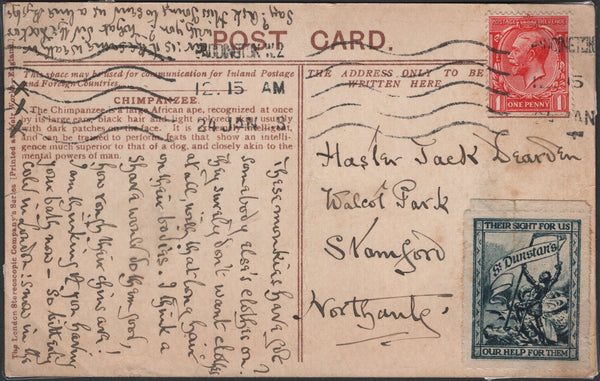 POST CARD.
This space may be used for communication for Inland Postage
and Foreign Countries.
THE ADDRESS ONLY TO BE
WRITTEN HERE
CHIMPANZEE.
The Chimpanzee is a large African ape, recognized at once
by its large ears, black hair and light colored face, usually
with dark patches on the face. It is extremely intelligent,
and can be trained to perform feats that show an intelli-
gence much superior to that of a dog, and closely akin to the
mental powers of man.
These monkies have got
somebody else's clothes on
They surely don't want clothes
at all with that long hair
on their bodies. I think a
shave would do them good,
how rough their chins are!
I am thinking of you having
your bath now - so bitterly
cold in London & snow in the
Master Jack Dearden
Walcot Park
Stamford
Northants
PADDINGTON. W.2
12. 15 AM
24 JAN
PADDINGTON
15
JAN
POSTAGE REVENUE
ONE PENNY
1
1
THEIR SIGHT FOR US
St Dunstan's
OUR HELP FOR THEM
The London Stereoscopic Company's Series